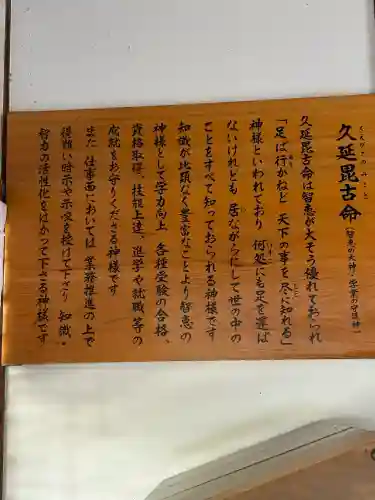 くえびこのみこと
久延毘古命
(智恵の大神・学業の守護神)
久延毘古命は智恵が大そう優れておられ
「足は行かねど 天下の事を尽に知れる」
神様といわれており 何処にも足を運ば
ないけれども 居ながらにして世の中の
ことをすべて知っておられる神様です
知識が比類なく豊富なことより智恵の
神様として学力向上 各種受験の合格、
資格取得、技能上達、進学や就職、等の
成就をお守りくださる神様です
また 仕事面においては 業務推進の上で
得難い時示や示唆を授けて下さり 知識・
智力の活性化をはかって下さる神様です